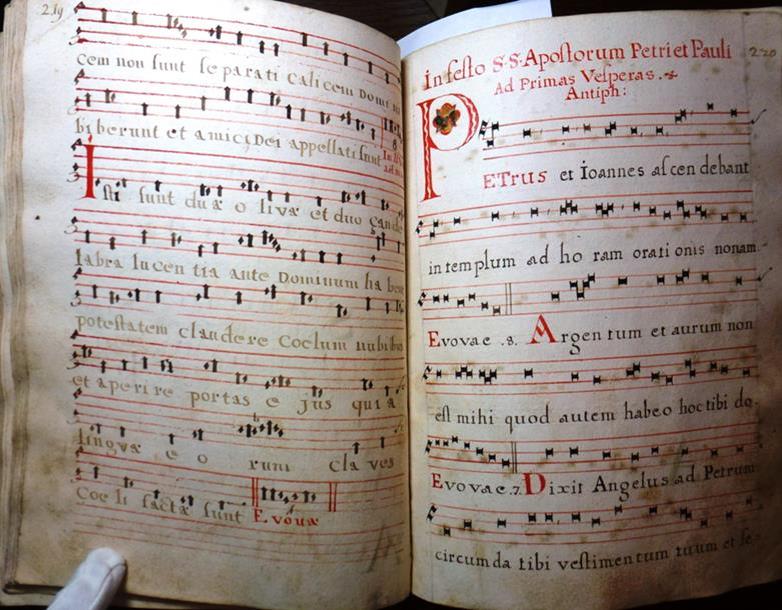 219
cem non sunt se parati calicem Domi ni
biberunt et amici Dei appellati sunt
Isti sunt duæ o livæ et duo cande
labra lucen tia ante Dominum ha bent
potestatem claudere Coelum nubibus
et aperi re portas e jus quia
linguæ e o rum cla ves
Coe li factæ sunt Evouæ
220
In festo S.S. Apostorum Petri et Pauli
Ad Primas Vesperas.
Antiph:
PETrus et Ioannes ascen debant
in templum ad ho ram orati onis nonam.
Evovae .8. Argen tum et aurum non
est mihi quod autem habeo hoc tibi do-
Evovae.7. Dixit Angelus ad Petrum
circumda tibi vestimen tum tuum et se-